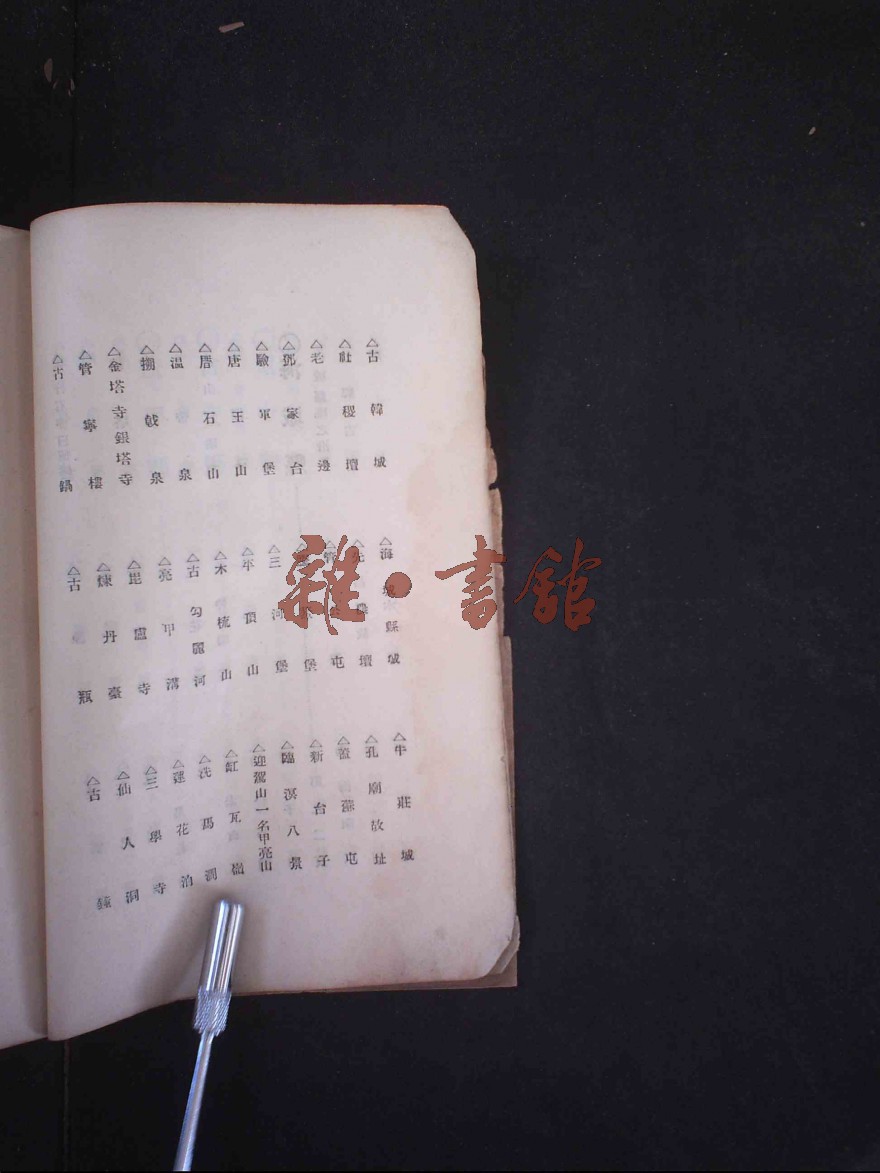 △古韓城
△社稷壇
△老邊
△鄧家台
△驗軍堡
△唐王山
△唐石山
△溫泉
△搠戟泉
△金塔寺銀塔寺
△管寧樓
△古鍋
△海城縣城
△先農壇
△管屯
堡
△三河堡
△平頂山
△木梳山
△古勾麗河
△亮甲溝
△毘盧寺
△煉丹臺
△古瓶
△牛莊城
△孔廟故址
△蓋蘇屯
△新台子
△臨溟八景
△迎駕山一名甲亮山
△缸瓦嶺
△洗馬澗
△蓮花泊
△三學寺
△仙人洞
△古鐘
雜·書館